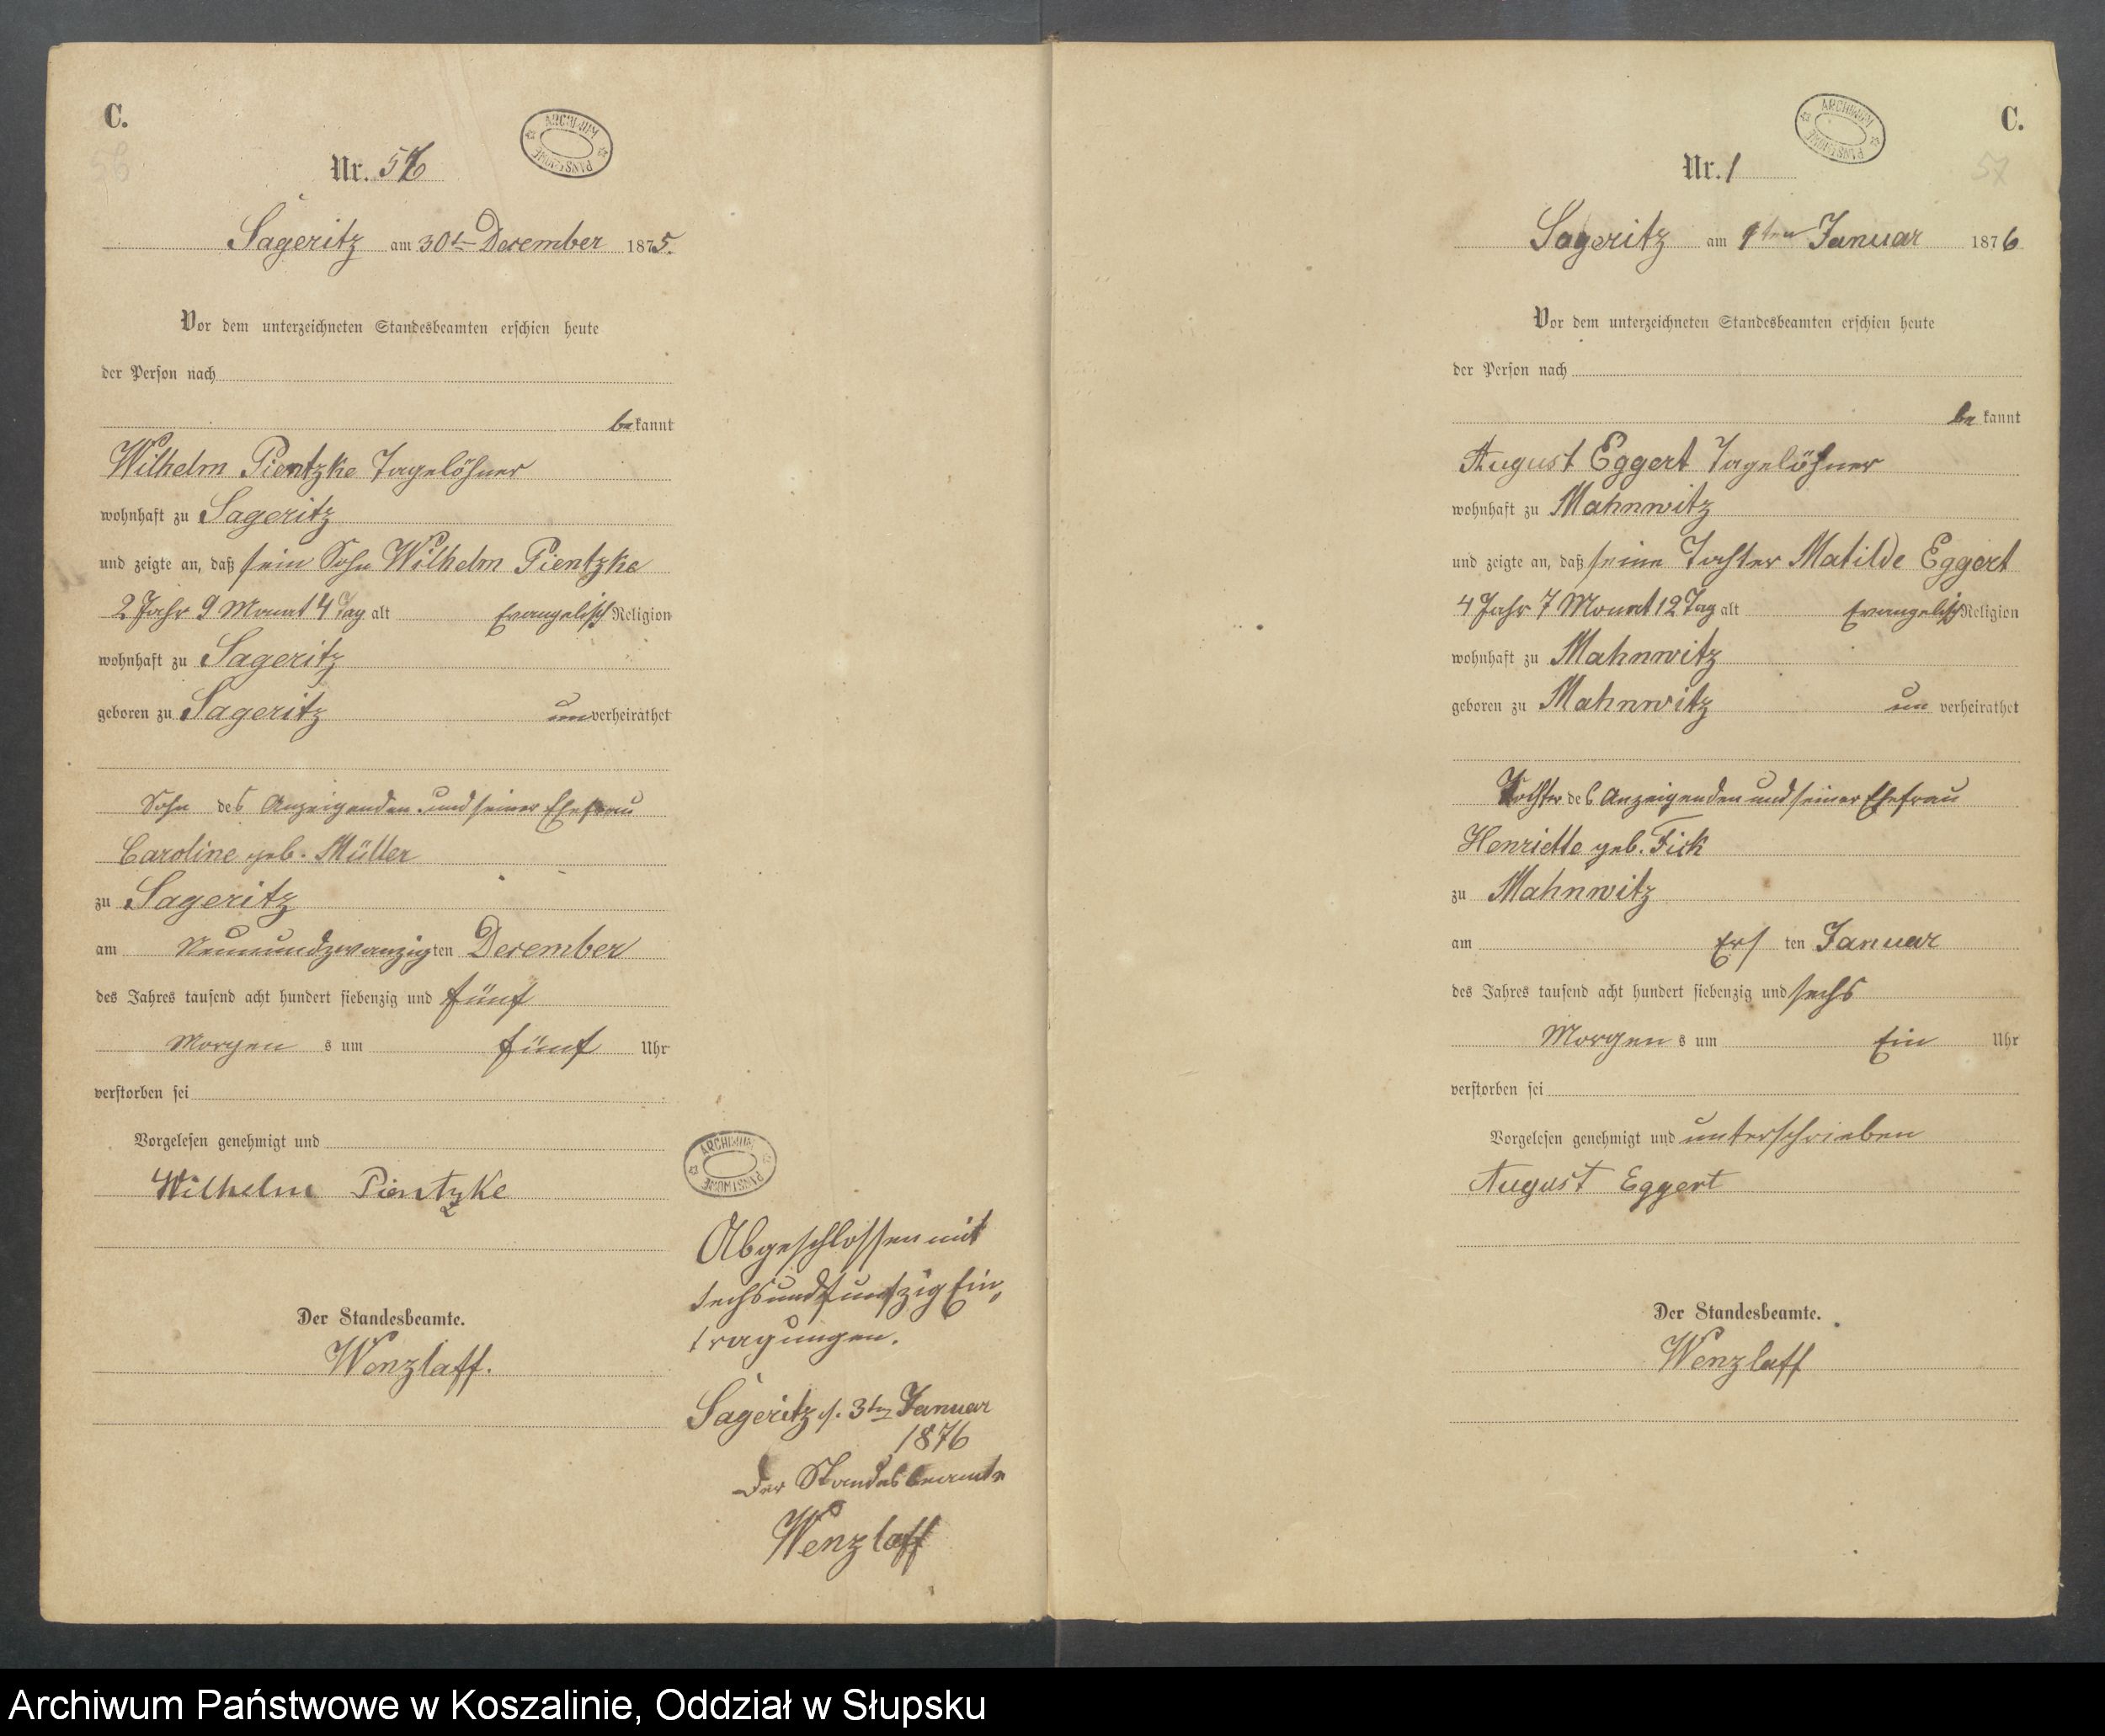 C.
56
ARCHIWUM PAŃSTWOWE
Nr. 56
Sageritz am 30t Dezember 1875.
Vor dem unterzeichneten Standesbeamten erschien heute
der Person nach
bekannt
Wilhelm Pientzke Tagelöhner
wohnhaft zu Sageritz
und zeigte an, daß sein Sohn Wilhelm Pientzke
2 Jahr 9 Monat 4 Tag alt Evangelisch Religion
wohnhaft zu Sageritz
geboren zu Sageritz unverheirathet
Sohn des Anzeigenden und seiner Ehefrau
Caroline geb. Müller
zu Sageritz
am Neunundzwanzigten Dezember
des Jahres tausend acht hundert siebenzig und fünf
Morgens um fünf Uhr
verstorben sei
Vorgelesen genehmigt und
Wilhelm Pientzke
Der Standesbeamte.
Wenzlaff.
ARCHIWUM PAŃSTWOWE
Abgeschlossen mit
sechsundfunfzig Ein,
tragungen.
Sageritz d. 3ten Januar
1876
Der Standesbeamte
Wenzlaff
C.
57
ARCHIWUM PAŃSTWOWE
Nr. 1
Sageritz am 1ten Januar 1876
Vor dem unterzeichneten Standesbeamten erschien heute
der Person nach
bekannt
August Eggert Tagelöhner
wohnhaft zu Mahnwitz
und zeigte an, daß seine Tochter Matilde Eggert
4 Jahr 7 Monat 12 Tag alt Evangelisch Religion
wohnhaft zu Mahnwitz
geboren zu Mahnwitz unverheirathet
Tochter des Anzeigenden und seiner Ehefrau
Henriette geb. Fick
zu Mahnwitz
am Ersten Januar
des Jahres tausend acht hundert siebenzig und sechs
Morgens um Ein Uhr
verstorben sei
Vorgelesen genehmigt und unterschrieben
August Eggert
Der Standesbeamte.
Wenzlaff
Archiwum Państwowe w Koszalinie, Oddział w Słupsku